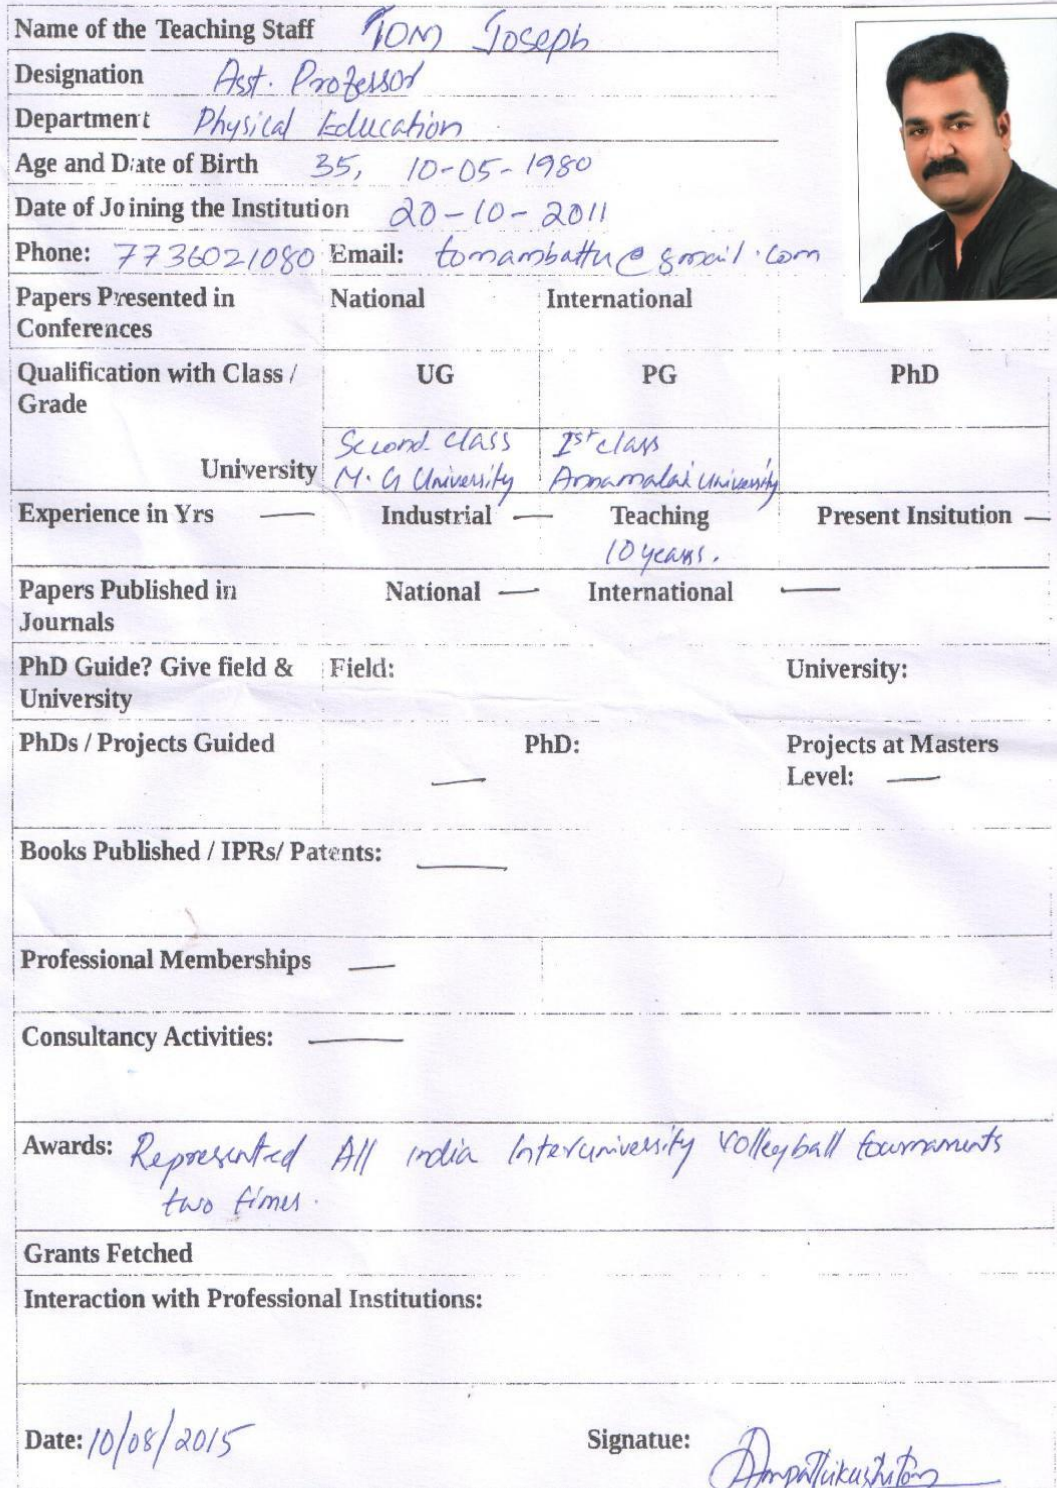 Name of the Teaching Staff Tom Joseph
Designation Asst. Professor
Department Physical Education
Age and Date of Birth 35, 10-05-1980
Date of Joining the Institution 20-10-2011
Phone: 7736021080 Email: tomambattu@gmail.com
Papers Presented in Conferences National International
Qualification with Class / Grade UG PG PhD
Second class Ist class
University M.G University Annamalai University
Experience in Yrs — Industrial — Teaching Present Insitution —
10 years.
Papers Published in Journals National — International —
PhD Guide? Give field & University Field: University:
PhDs / Projects Guided — PhD: Projects at Masters Level: —
Books Published / IPRs/ Patents: —
Professional Memberships —
Consultancy Activities: —
Awards: Represented All india Interuniversity volleyball tournaments
two times.
Grants Fetched
Interaction with Professional Institutions:
Date: 10/08/2015 Signatue: